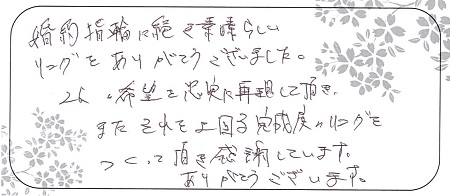 婚約指輪に続き素晴らしい
リングをありがとうございました。
希望を忠実に再現して頂き、
また それを上回る完成度のリングを
つくって頂き感謝しています。
ありがとうございます。